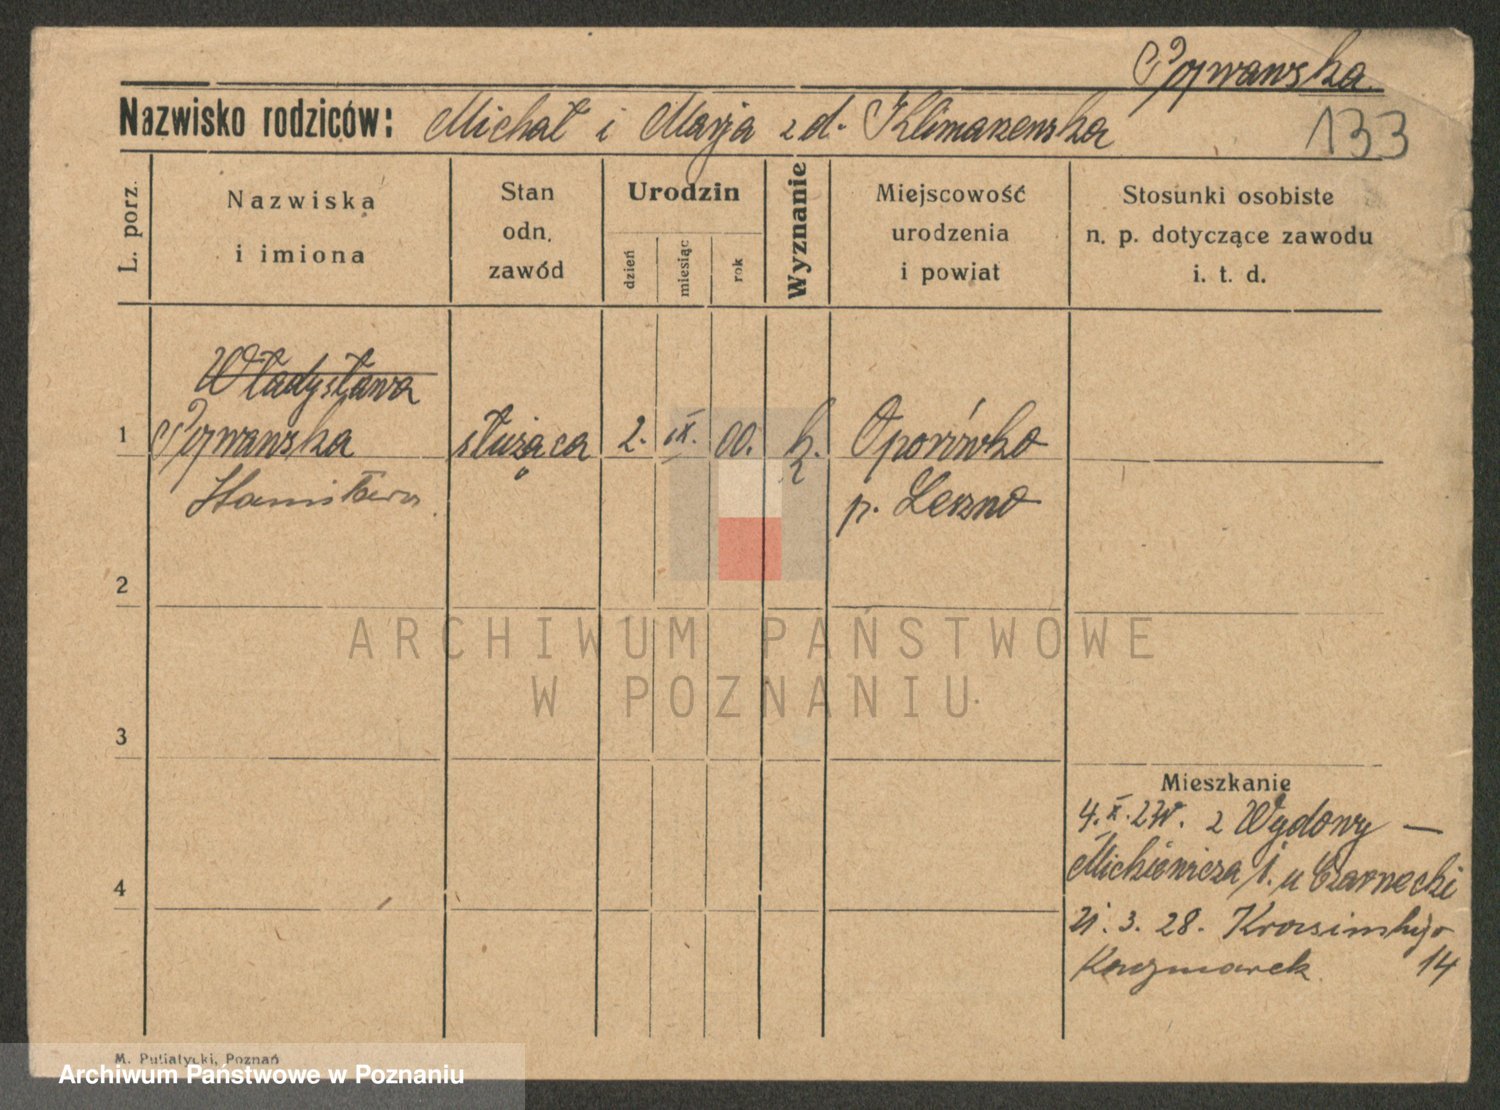 Pojwanska
Nazwisko rodziców: Michał i Marja z d. Klimaszewska
133
L. porz.
Nazwiska
i imiona
Stan
odn.
zawód
Urodzin
dzień
miesiąc
rok
Wyznanie
Miejscowość
urodzenia
i powiat
Stosunki osobiste
n. p. dotyczące zawodu
i. t. d.
Władysława
1 służąca 2. IX. 00. k. Oporówko
Stanisława p. Leszno
2
ARCHIWUM PAŃSTWOWE
W POZNANIU
3
Mieszkanie
4. X. z
4 Mickiewicza 1. u Czarnecki
3. 28. Krasińskiego
Kaczmarek 14
M. Putiatycki, Poznań
Archiwum Państwowe w Poznaniu